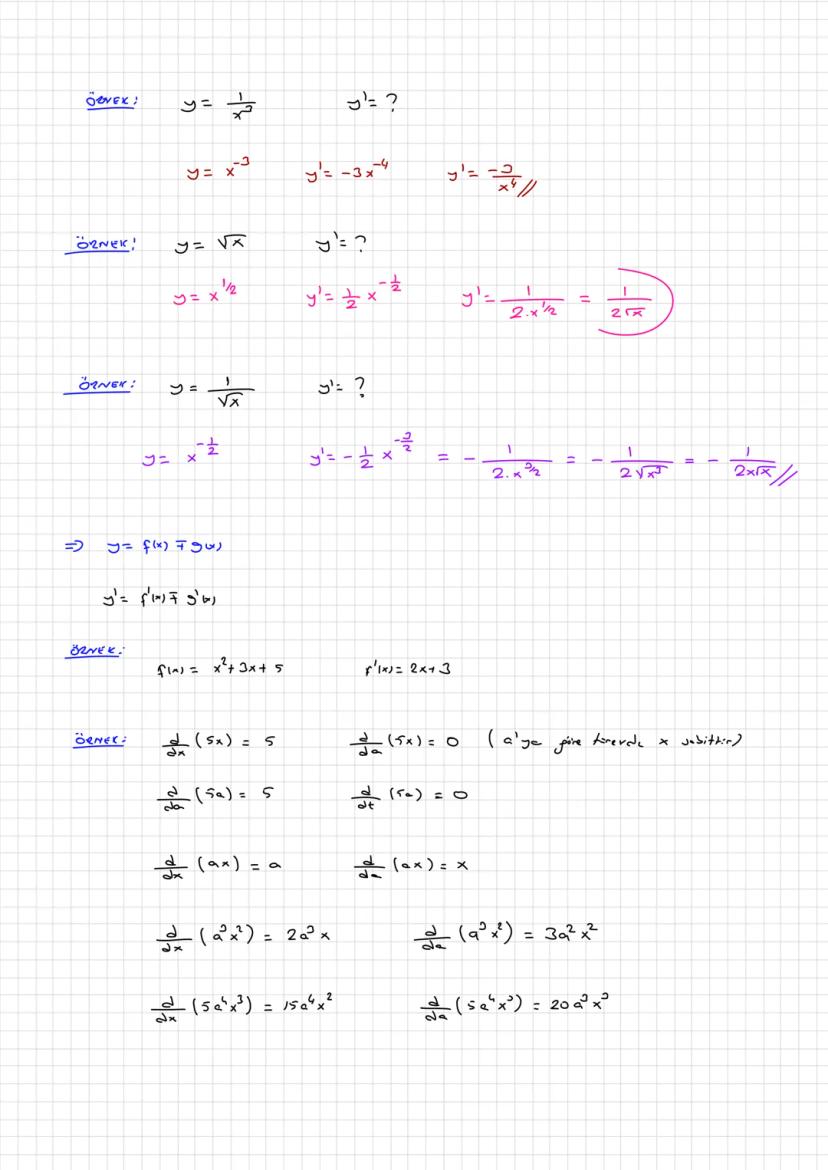 ÖRNEK: y = 1/x³ y' = ?
y = x⁻³ y' = -3x⁻⁴ y' = -3/x⁴ //
ÖRNEK! y = √x y' = ?
y = x^1/2 y' = 1/2 x^-1/2 y' = 1/(2.x^1/2) = 1/(2√x)
ÖRNEK: y = 1/√x y' = ?
y = x^-1/2 y' = -1/2 x^-3/2 = - 1/(2.x^3/2) = - 1/(2√x³) = - 1/(2x√x) //
⇒ y = f(x) ∓ g(x)
y' = f'(x) ∓ g'(x)
ÖRNEK:
f(x) = x² + 3x + 5 f'(x) = 2x+3
ÖRNEK: d/dx (5x) = 5 d/da (5x) = 0 (a'ya göre türevde x sabittir)
d/da (5a) = 5 d/dt (5a) = 0
d/dx (ax) = a d/da (ax) = x
d/dx (a³x²) = 2a³x d/da (a³x²) = 3a²x²
d/dx (5a⁴x³) = 15a⁴x² d/da (5a⁴x³) = 20a³x³